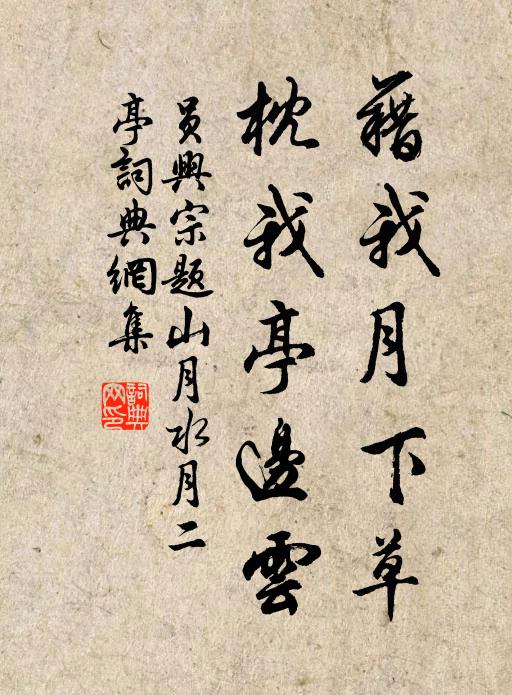 藉我月下草
枕我亭邊雲
員興宗題山月水月二
亭詞典網集
詞典網印